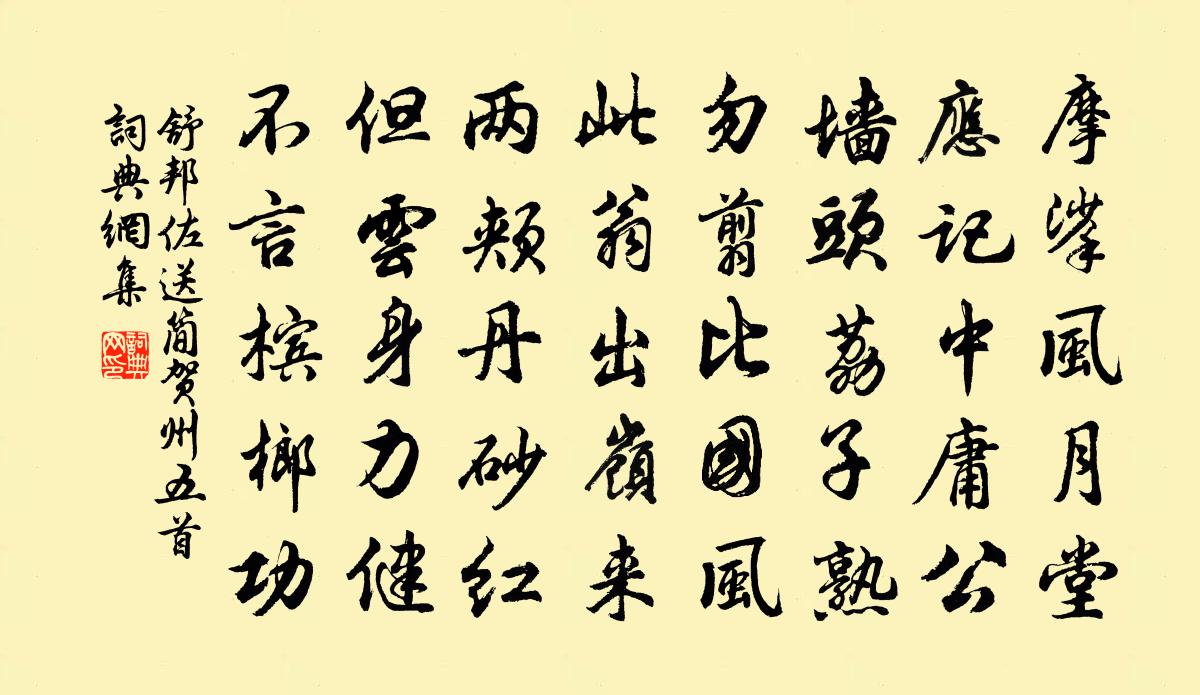 摩挲風月堂
應記中庸公
墙頭荔子熟
勿翦比國風
此翁出嶺来
两頰丹砂红
但雲身力健
不言槟榔功
舒邦佐送简贺州五首
詞典網集
詞典網印